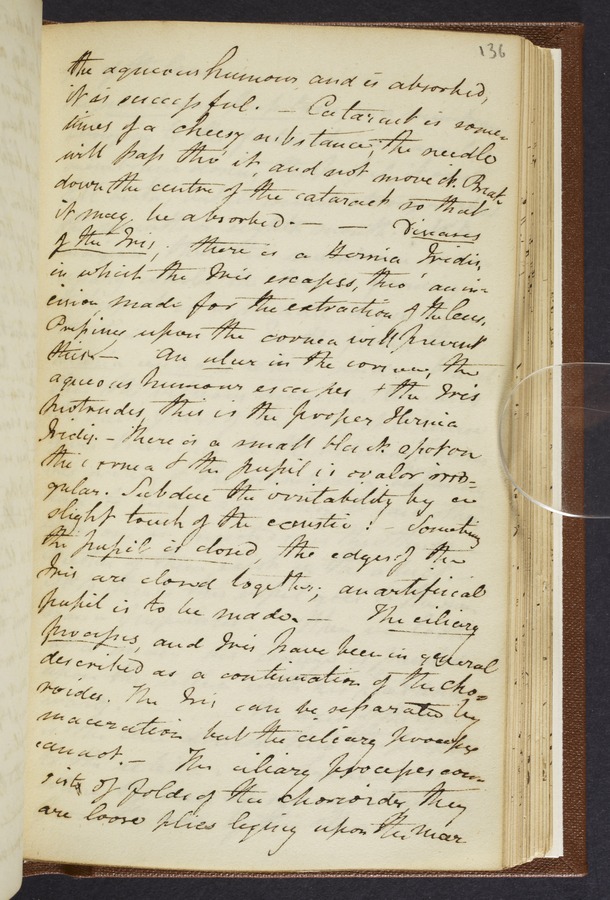 136
the aqueous humour and is absorbed,
it is successful. — Cataract is some-
times of a cheesy substance; the needle
will pass thro' it, and not move it. Break
down the centre of the cataract so that
it may be absorbed. — — Diseases
of the Iris, there is a Hernia Iridis,
in which the Iris escapes, thro' an in-
cision made for the extraction of the lens.
upon the cornea will prevent
this — An ulcer in the cornea, the
aqueous humour escapes & the Iris
protrudes, this is the proper Hernia
Iridis. — There is a small black spot on
the cornea & the pupil is oval or irre-
gular. Subdue the irritability by a
slight touch of the caustic! — Sometimes
the pupil is closed, the edges of the
Iris are closed together; an artificial
pupil is to be made. — The ciliary
processes, and Iris have been in general
described as a continuation of the cho-
roides. The Iris can be separated by
maceration but the ciliary processes
cannot. — The ciliary processes con-
sists of folds of the choroides, they
are loose plies lying upon the mar